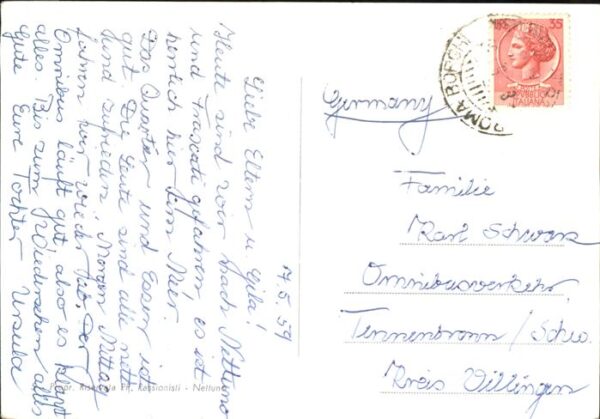 17.5.59
Liebe Eltern u. Gila!
Heute sind wir nach Nettuno
und Frascati gefahren es ist
herrlich hier im Meer.
Das Quartier und Essen ist
gut. Die Leute sind alle nett
und zufrieden. Morgen Mittag
fahren wir wieder ab. Der
Omnibus läuft gut also es klappt
alles. Bis zum Wiedersehen alles
Gute Eure Tochter Ursula
Propr. Riservata PP. Passionisti - Nettuno
35
REPUBBLICA
ITALIANA
ROMA
Germany
Familie
Karl Schwarz
Omnibusverkehr
Tennenbronn / Schw.
Kreis Villingen